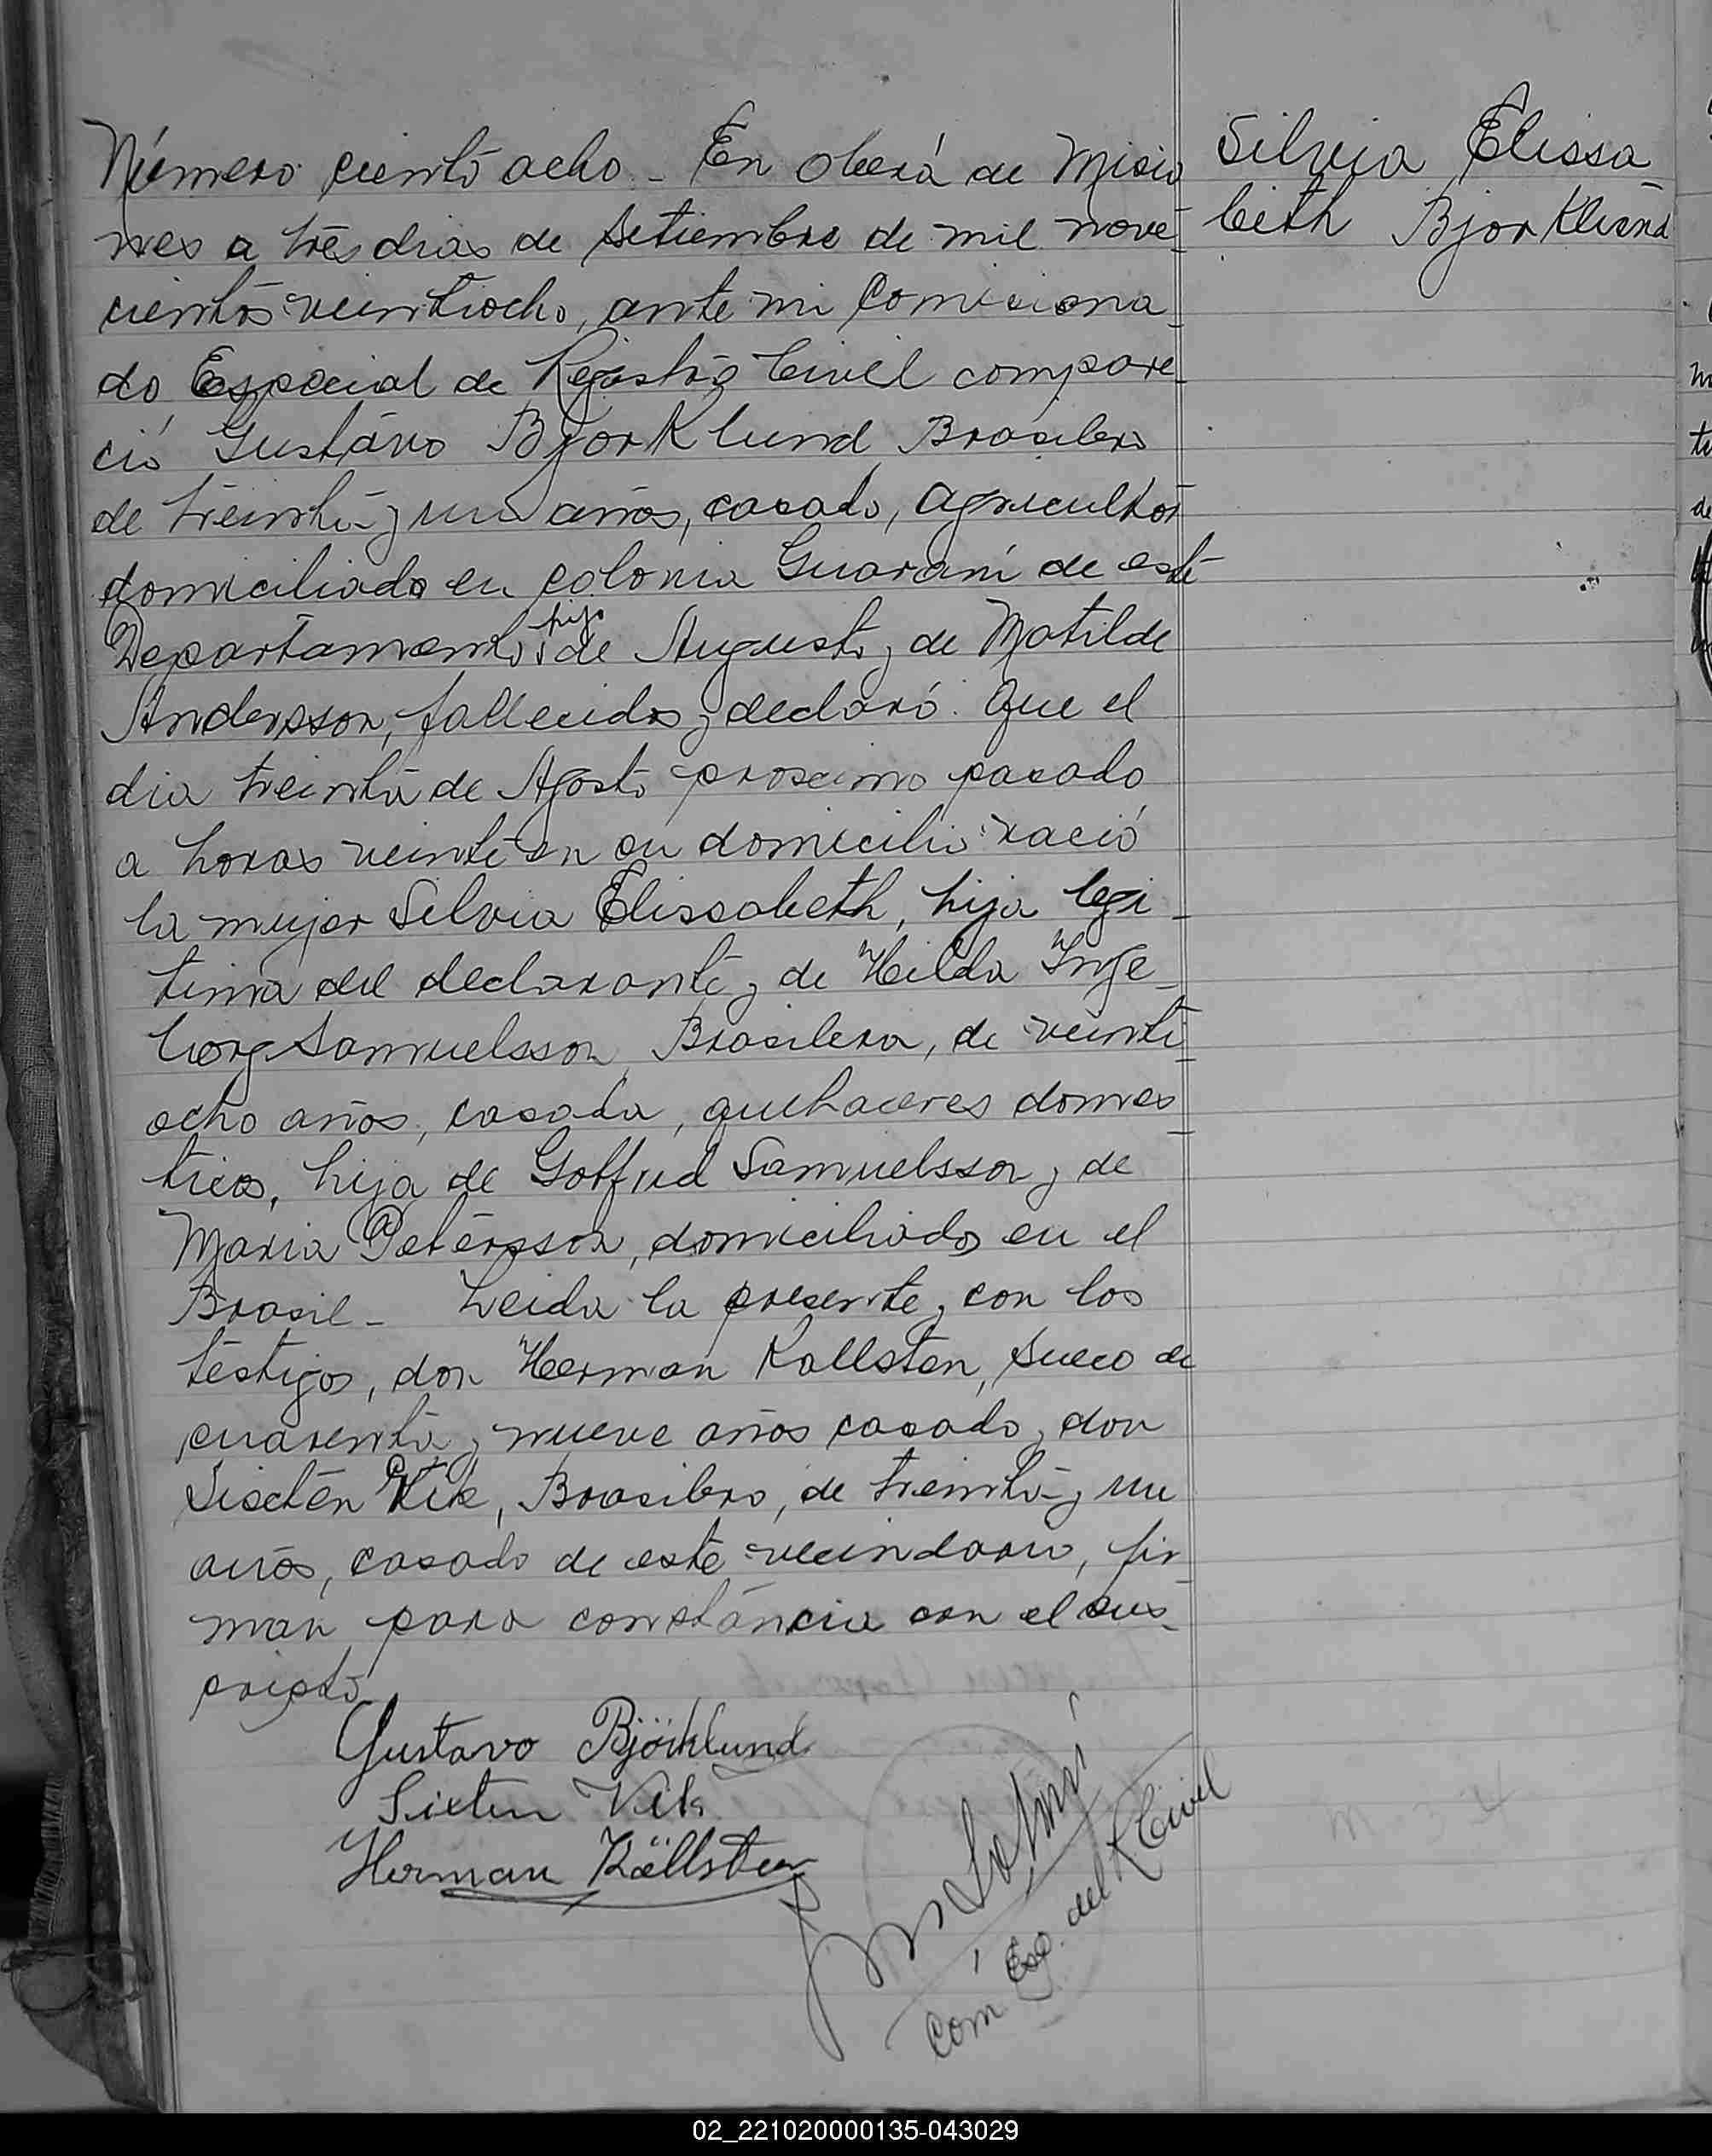 Número ciento ocho - En Oberá de Misio
nes a tres dias de Setiembre de mil nove-
cientos veintiocho, ante mi Comisiona-
do Especial de Registro Civil compare-
ció Gustavo Bjorklund Brasilero
de treinta y un años, casado, agricultor
domiciliado en colonia Guaraní de este
Departamento, hijo de Augusto y de Matilde
Andersson, fallecidos y declaró: Que el
dia treinta de Agosto proscimo pasado
a horas veinte en su domicilio nació
la mujer Silvia Elissabeth, hija legi-
tima del declarante y de Hilda Inge-
borg Samuelsson, Brasilera, de veinti
ocho años, casada, quehaceres domes-
ticos, hija de Gotfrid Samuelsson y de
Maria Petersson, domiciliados en el
Brasil - Leida la presente, con los
testigos, don Herman Kallsten, Sueco de
cuarenta y nueve años casado y don
Siscten Vik, Brasilero, de treinta y un
años, casado de este vecindario, fir-
man para constáncia con el sus-
cripto
Silvia Elissa-
beth Bjorklund
Gustavo Björklund
Sixten Vik
Herman Källsten
Com Esp. del R Civil
02_221020000135-043029